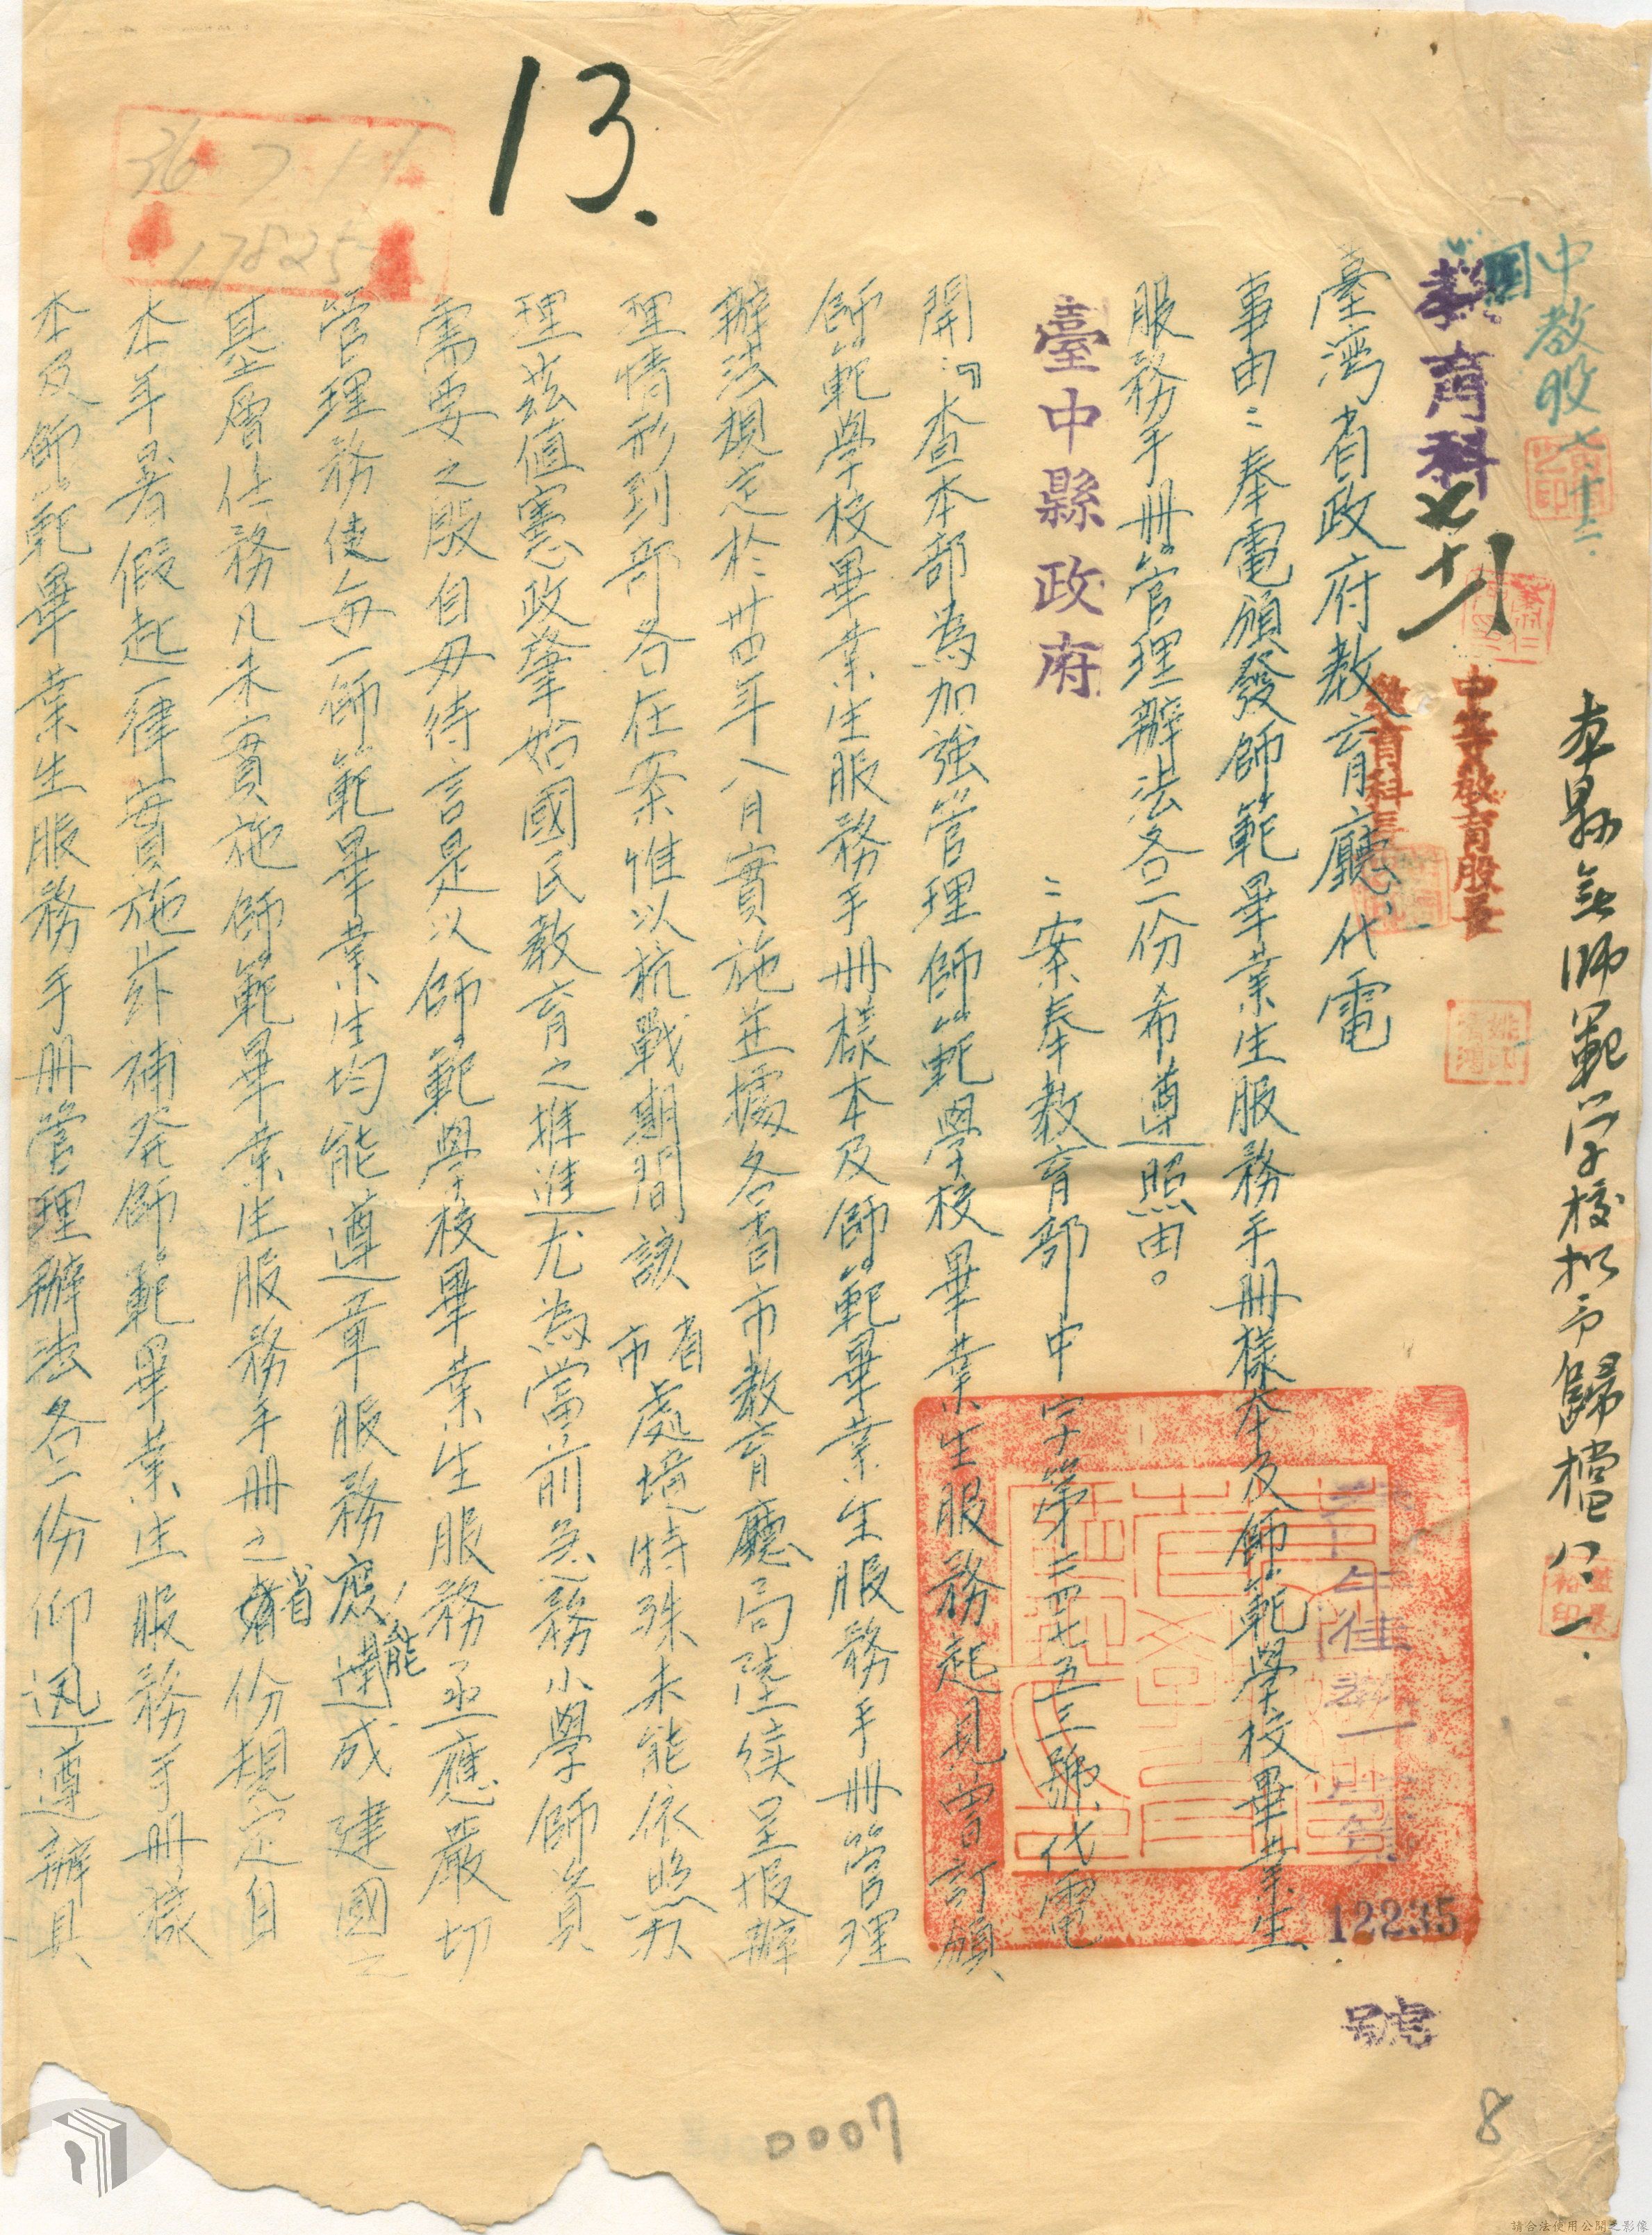 13.
36 7 11
17825
中教股
七、十二、
教育科
本縣無師範学校擬予歸檔 八、一、
中等教育股長
教育科長
臺灣省政府教育廳代電
12235
號
事由：奉電頒發師範畢業生服務手冊樣本及師範學校畢業生
服務手冊管理辦法各二份希遵照由。
臺中縣政府：案奉教育部中字第二四七五三號代電
開：「查本部為加強管理師範學校畢業生服務起見曾訂頒
師範學校畢業生服務手冊樣本及師範畢業生服務手冊管理
辦法規定於卅四年八月實施並據各省市教育廳局陸續呈報辦
理情形到部各在案惟以抗戰期間該省市處境特殊未能依照办
理茲值憲政肇始國民教育之推進尤為當前急務小學師資
需要之殷自毋待言是以師範學校畢業生服務亟應嚴切
管理務使每一師範畢業生均能遵章服務應能達成建國之
基層任務凡未實施師範畢業生服務手冊之省份規定自
本年暑假起一律實施並補発師範畢業生服務手冊樣
本及師範畢業生服務手冊管理辦法各二份仰迅遵辦具
0007
8
請合法使用公開之影像